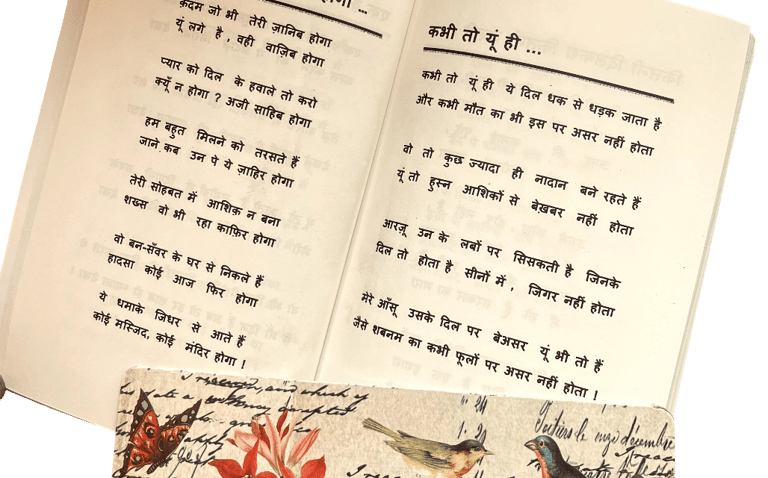 क़दम जो भी तेरी ज़ानिब होगा
यूं लगे है, वही वाज़िब होगा
प्यार को दिल के हवाले तो करो
क्यूँ न होगा ? अजी साहिब होगा
हम बहुत मिलने को तरसते हैं
जाने कब उन पे ये ज़ाहिर होगा
तेरी सोहबत में आशिक़ न बना
शख्स वो भी रहा काफ़िर होगा
वो बन-सँवर के घर से निकले हैं
हादसा कोई आज फिर होगा
ये धमाके जिधर से आते हैं
कोई मस्जिद, कोई मंदिर होगा !
कभी तो यूं ही ...
कभी तो यूं ही ये दिल धक से धड़क जाता है
और कभी मौत का भी इस पर असर नहीं होता
वो तो कुछ ज्यादा ही नादान बने रहते हैं
यूं तो हुस्न आशिकों से बेख़बर नहीं होता
आरज़ू उन के लबों पर सिसकती है जिनके
दिल तो होता है सीनों में, जिगर नहीं होता
मेरे आँसू उसके दिल पर बेअसर यूं भी तो हैं
जैसे शबनम का कभी फूलों पर असर नहीं होता !